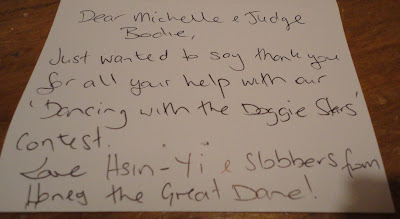 Dear Michelle & Judge
Bodie,
Just wanted to say thank you
for all your help with our
'Dancing with the Doggie Stars'
Contest.
Love Hsin-Yi & Slobbers from
Honey the Great Dane!